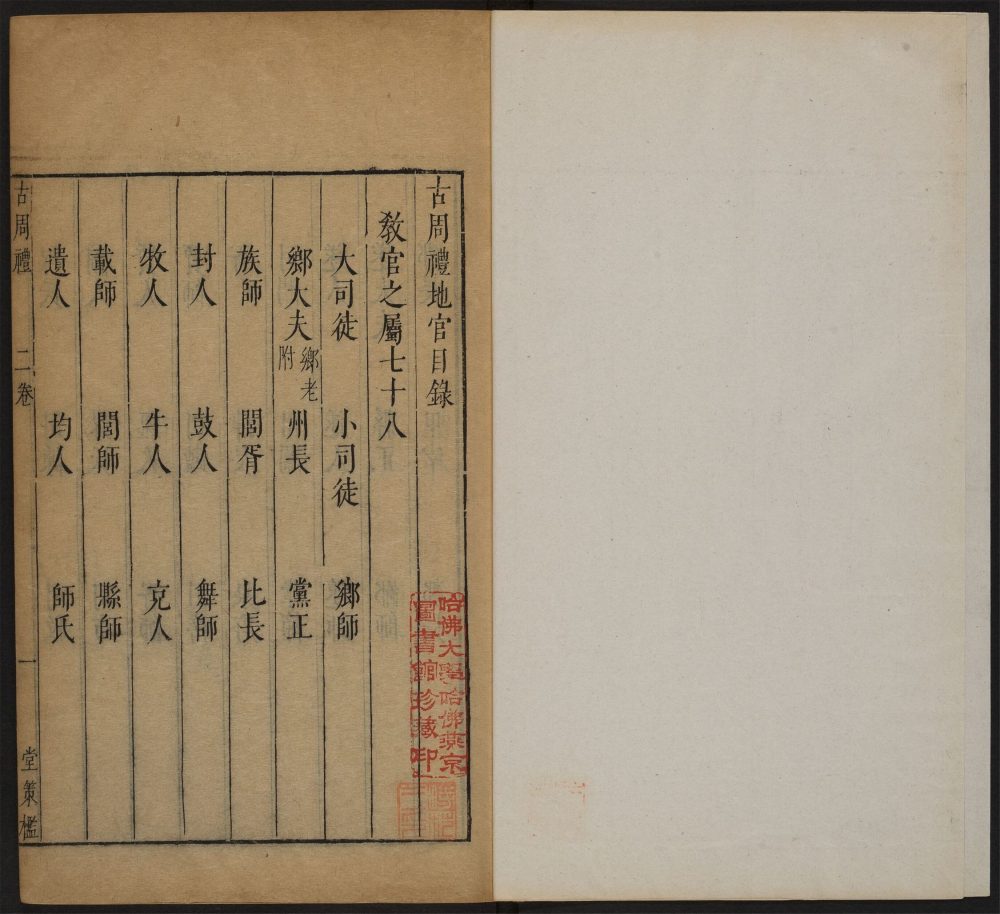 古周禮地官目錄
教官之屬七十八
大司徒 小司徒 鄉師
鄉大夫 鄉老附 州長 黨正
族師 閭胥 比長
封人 鼓人 舞師
牧人 牛人 充人
載師 閭師 縣師
遺人 均人 師氏
古周禮 二卷 一 堂策檻
哈佛大學哈佛燕京
圖書館珍藏印